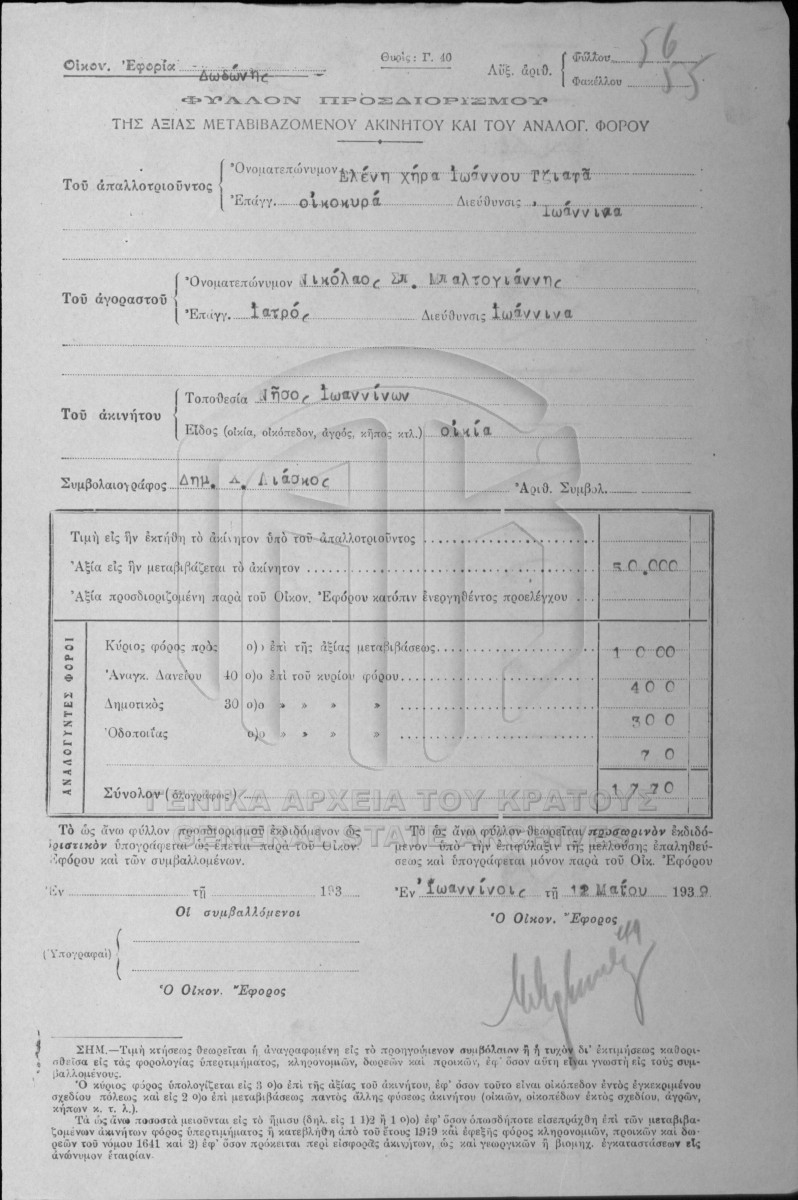 Οἰκον. Ἐφορία Δωδώνης
Θυρίς: Γ. 40
Αὔξ. ἀριθ. { Φύλλου 56
Φακέλλου 55
ΦΥΛΛΟΝ ΠΡΟΣΔΙΟΡΙΣΜΟΥ
ΤΗΣ ΑΞΙΑΣ ΜΕΤΑΒΙΒΑΖΟΜΕΝΟΥ ΑΚΙΝΗΤΟΥ ΚΑΙ ΤΟΥ ΑΝΑΛΟΓ. ΦΟΡΟΥ
Τοῦ ἀπαλλοτριοῦντος
Ὀνοματεπώνυμον Ἑλένη χήρα Ἰωάννου Τζιαφᾶ
Ἐπάγγ. οἰκοκυρά Διεύθυνσις Ἰωάννινα
Τοῦ ἀγοραστοῦ
Ὀνοματεπώνυμον Νικόλαος Σπ. Μπαλτογιάννης
Ἐπάγγ. Ἰατρός Διεύθυνσις Ἰωάννινα
Τοῦ ἀκινήτου
Τοποθεσία Νῆσος Ἰωαννίνων
Εἶδος (οἰκία, οἰκόπεδον, ἀγρός, κῆπος κτλ.) οἰκία
Συμβολαιογράφος Δημ. Λιάσκος Ἀριθ. Συμβολ.
Τιμὴ εἰς ἣν ἐκτήθη τὸ ἀκίνητον ὑπὸ τοῦ ἀπαλλοτριοῦντος
Ἀξία εἰς ἣν μεταβιβάζεται τὸ ἀκίνητον 50.000
Ἀξία προσδιοριζομένη παρὰ τοῦ Οἰκον. Ἐφόρου κατόπιν ἐνεργηθέντος προελέγχου
ΑΝΑΛΟΓΥΝΤΕΣ ΦΟΡΟΙ
Κύριος φόρος πρὸς ο)ο ἐπὶ τῆς ἀξίας μεταβιβάσεως 1000
Ἀναγκ. Δανείου 40 ο)ο ἐπὶ τοῦ κυρίου φόρου 400
Δημοτικὸς 30 ο)ο » » » » 300
Ὁδοποιΐας ο)ο » » » » 70
Σύνολον (ὁλογράφως) 1770
ΓΕΝΙΚΑ ΑΡΧΕΙΑ ΤΟΥ ΚΡΑΤΟΥΣ
Τὸ ὡς ἄνω φύλλον προσδιορισμοῦ ἐκδιδόμενον ὡς
ριστικὸν ὑπογράφεται ὡς ἕπεται παρὰ τοῦ Οἰκον.
Ἐφόρου καὶ τῶν συμβαλλομένων.
Ἐν τῇ 193
Οἱ συμβαλλόμενοι
(Ὑπογραφαὶ)
Ὁ Οἰκον. Ἔφορος
Τὸ ὡς ἄνω φύλλον θεωρεῖται προσωρινὸν ἐκδιδό-
μενον ὑπὸ τὴν ἐπιφύλαξιν τῆς μελλούσης ἐπαληθεύ-
σεως καὶ ὑπογράφεται μόνον παρὰ τοῦ Οἰκ. Ἐφόρου
Ἐν Ἰωαννίνοις τῇ 12 Μαΐου 1939
Ὁ Οἰκον. Ἔφορος
ΣΗΜ.—Τιμὴ κτήσεως θεωρεῖται ἡ ἀναγραφομένη εἰς τὸ προηγούμενον συμβόλαιον ἢ ἡ τυχὸν δι' ἐκτιμήσεως καθορι-
σθεῖσα εἰς τὰς φορολογίας ὑπερτιμήματος, κληρονομιῶν, δωρεῶν καὶ προικῶν, ἐφ' ὅσον αὕτη εἶναι γνωστὴ εἰς τοὺς συμ-
βαλλομένους.
Ὁ κύριος φόρος ὑπολογίζεται εἰς 3 ο)ο ἐπὶ τῆς ἀξίας τοῦ ἀκινήτου, ἐφ' ὅσον τοῦτο εἶναι οἰκόπεδον ἐντὸς ἐγκεκριμένου
σχεδίου πόλεως καὶ εἰς 2 ο)ο ἐπὶ μεταβιβάσεως παντὸς ἄλλης φύσεως ἀκινήτου (οἰκιῶν, οἰκοπέδων ἐκτὸς σχεδίου, ἀγρῶν,
κήπων κ. τ. λ.).
Τὰ ὡς ἄνω ποσοστὰ μειοῦνται εἰς τὸ ἥμισυ (δηλ. εἰς 1 1)2 ἢ 1 ο)ο) ἐφ' ὅσον ὁπωσδήποτε εἰσεπράχθη ἐπὶ τῶν μεταβιβα-
ζομένων ἀκινήτων φόρος ὑπερτιμήματος ἢ κατεβλήθη ἀπὸ τοῦ ἔτους 1919 καὶ ἐφεξῆς φόρος κληρονομιῶν, προικῶν καὶ δω-
ρεῶν τοῦ νόμου 1641 καὶ 2) ἐφ' ὅσον πρόκειται περὶ εἰσφορᾶς ἀκινήτων, ὡς καὶ γεωργικῶν ἢ βιομηχ. ἐγκαταστάσεων εἰς
ἀνώνυμον ἑταιρίαν.